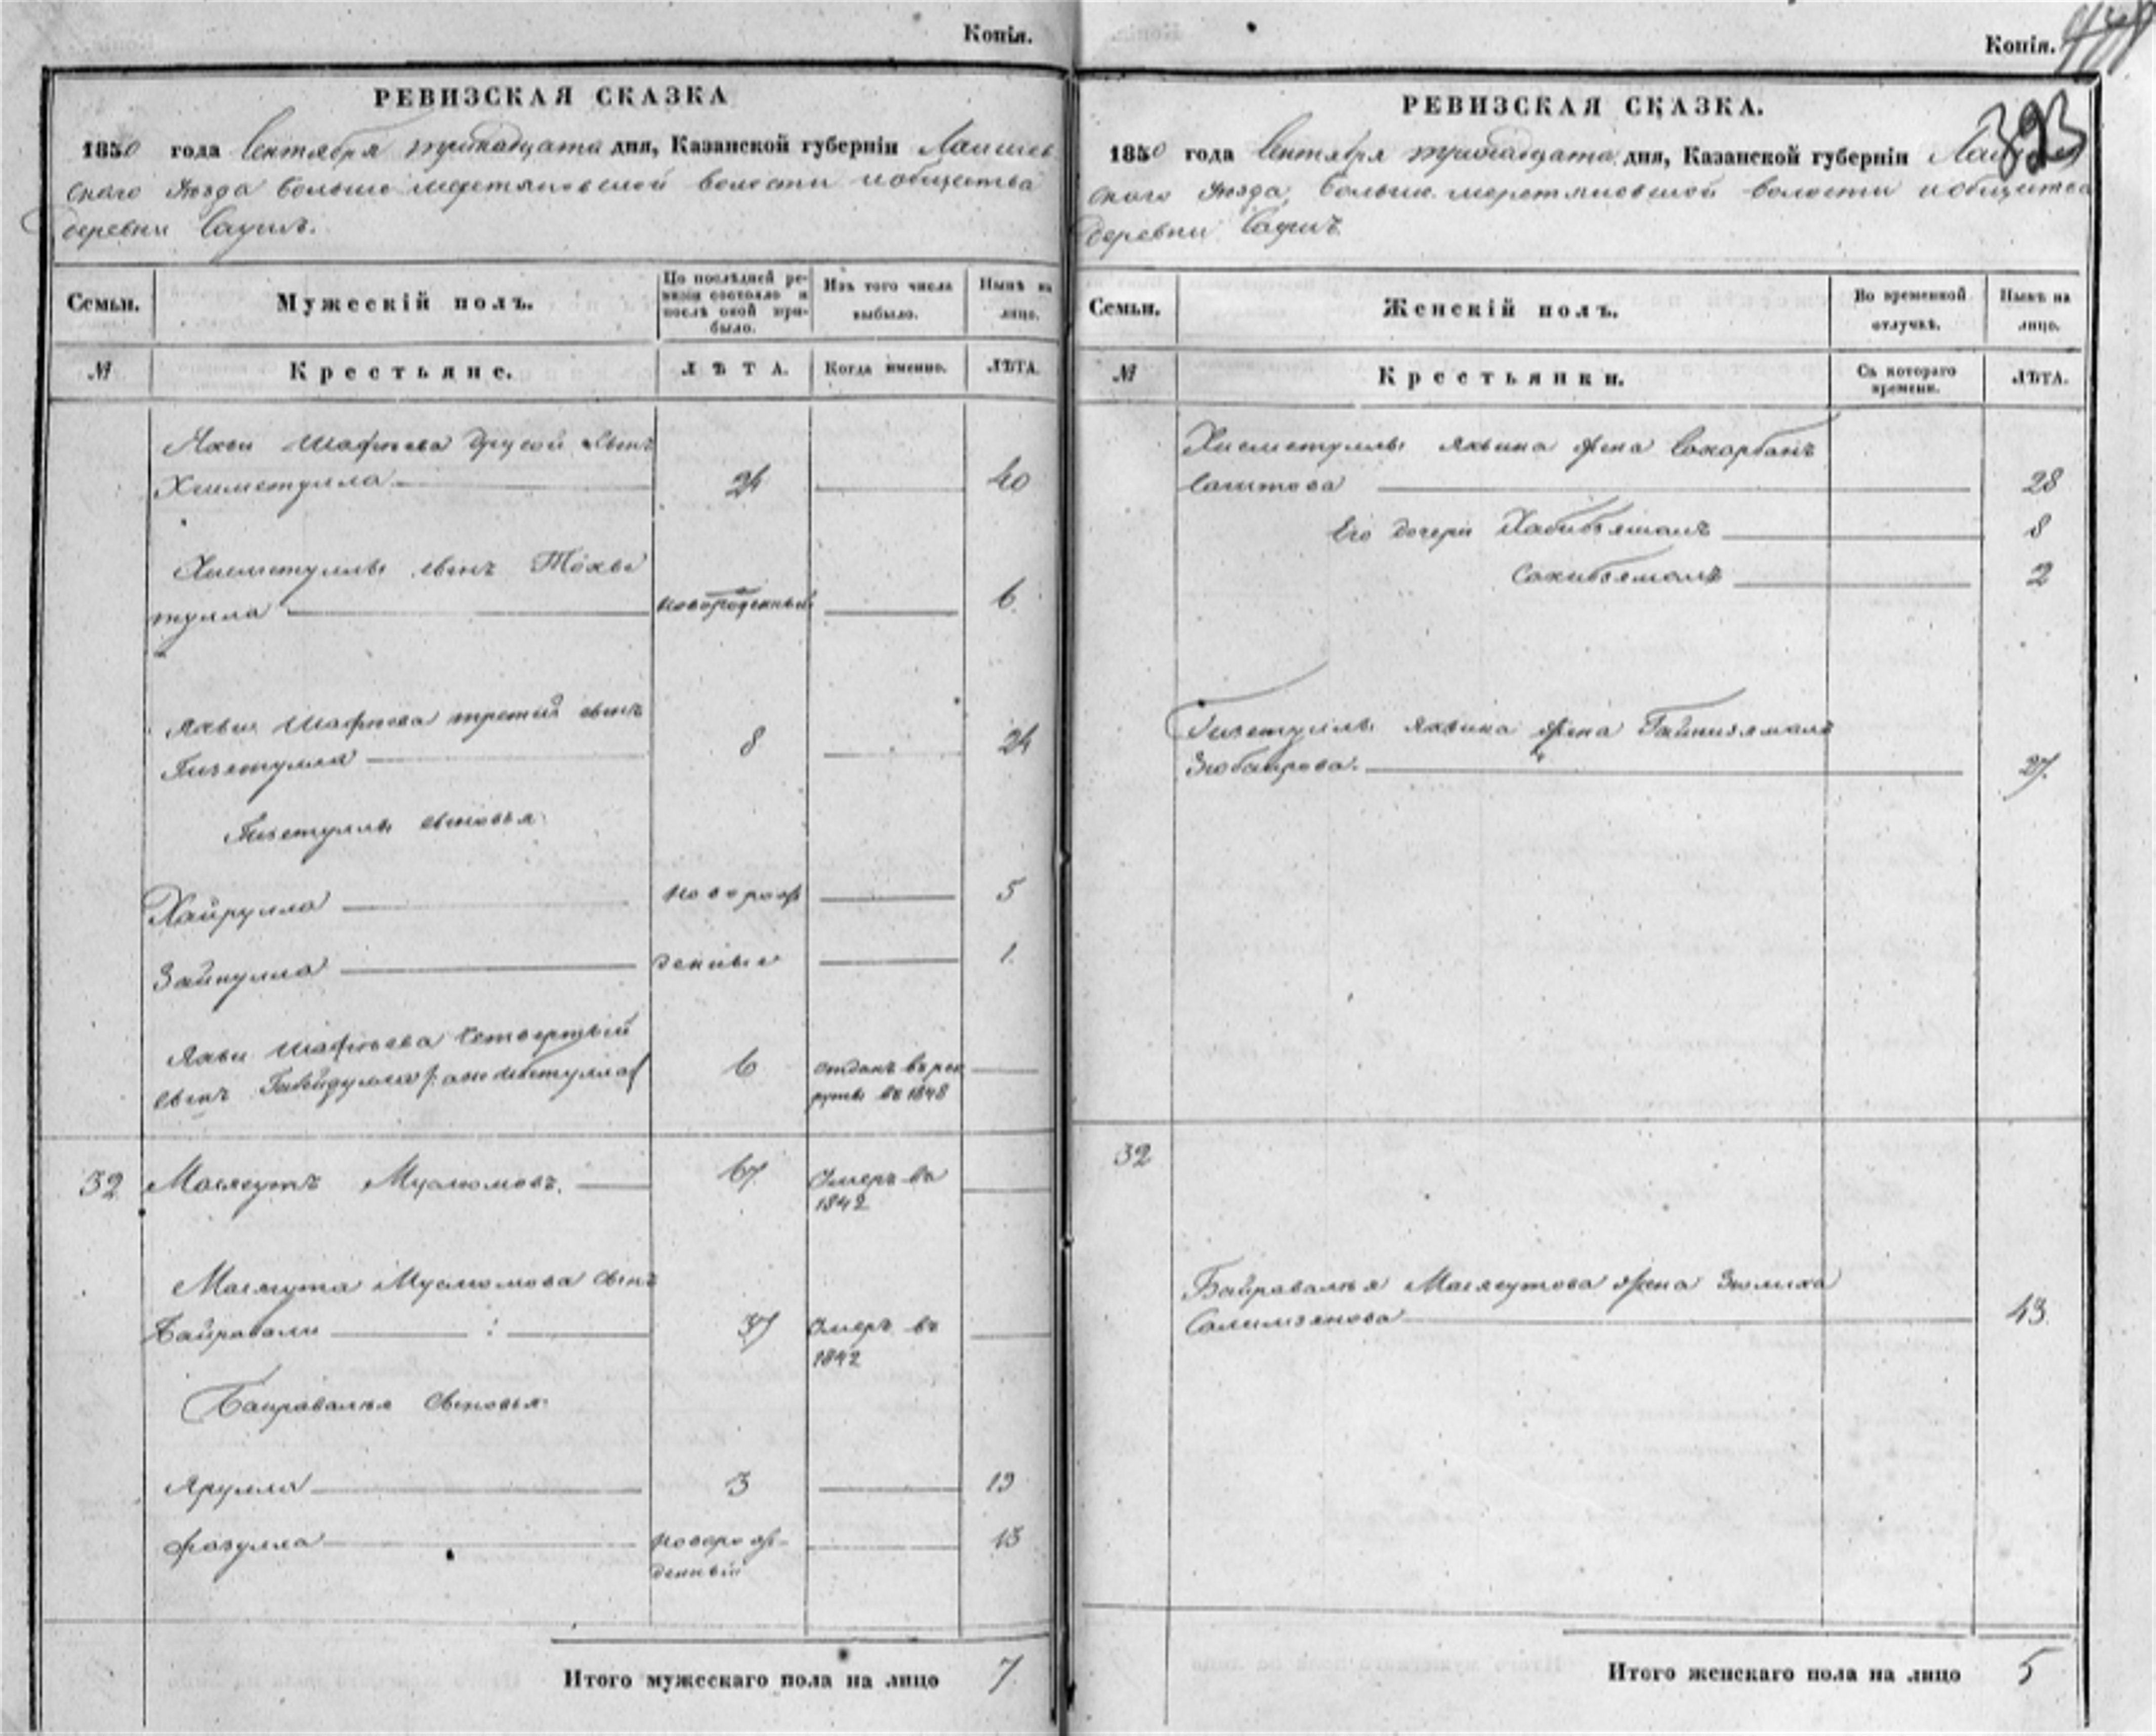 Копія.
РЕВИЗСКАЯ СКАЗКА
1850 года Сентября тринадцата дня, Казанской губерніи Лаишев
скаго Уѣзда Больше меретяковской волости и общества
деревни
Семьи.
Мужескій полъ.
По послѣдней ре-
визіи состояло и
послѣ оной при-
было.
Изъ того числа
выбыло.
Нынѣ на
лицо.
№
Крестьяне.
ЛѢТА.
Когда именно.
ЛѢТА.
Яхьи Шафѣева другой сынъ
Хисметулла 24 40
Хисметуллы сынъ Тохва
тулла новорожденный 6
Яхьи Шафѣева третій сынъ
Гизетулла 8 24
Гизетуллы сыновья
Хайрулла новорож 5
Зайнулла денные 1
Яхьи Шафѣева четвертый
сынъ 6 отданъ въ рек
руты въ 1848
32 Масягутъ Муслюмовъ. 67 Умеръ въ
1842
Масягута Муслюмова сынъ
Байравали 37 Умеръ въ
1842
Байравалея сыновья
Ярулла 3 19
Фазулла новорож-
денный 13
Итого мужескаго пола на лицо 7
Копія.
393
РЕВИЗСКАЯ СКАЗКА.
1850 года Сентября тринадцата дня, Казанской губерніи
скаго Уѣзда Больше меретяковской волости и общества
деревни
Семьи.
Женскій полъ.
Во временной
отлучкѣ.
Нынѣ на
лицо.
№
Крестьянки.
Съ котораго
времени.
ЛѢТА.
Хисметуллы Яхьина жена
Саитова 28
Его дочери Хабибзямалъ 8
Сахибзямалъ 2
Гизетуллы Яхьина жена Гайнизямалъ
Зюбаирова. 27
32
Байравалея Масягутова жена Зюлиха
Салимзянова 43
Итого женскаго пола на лицо 5